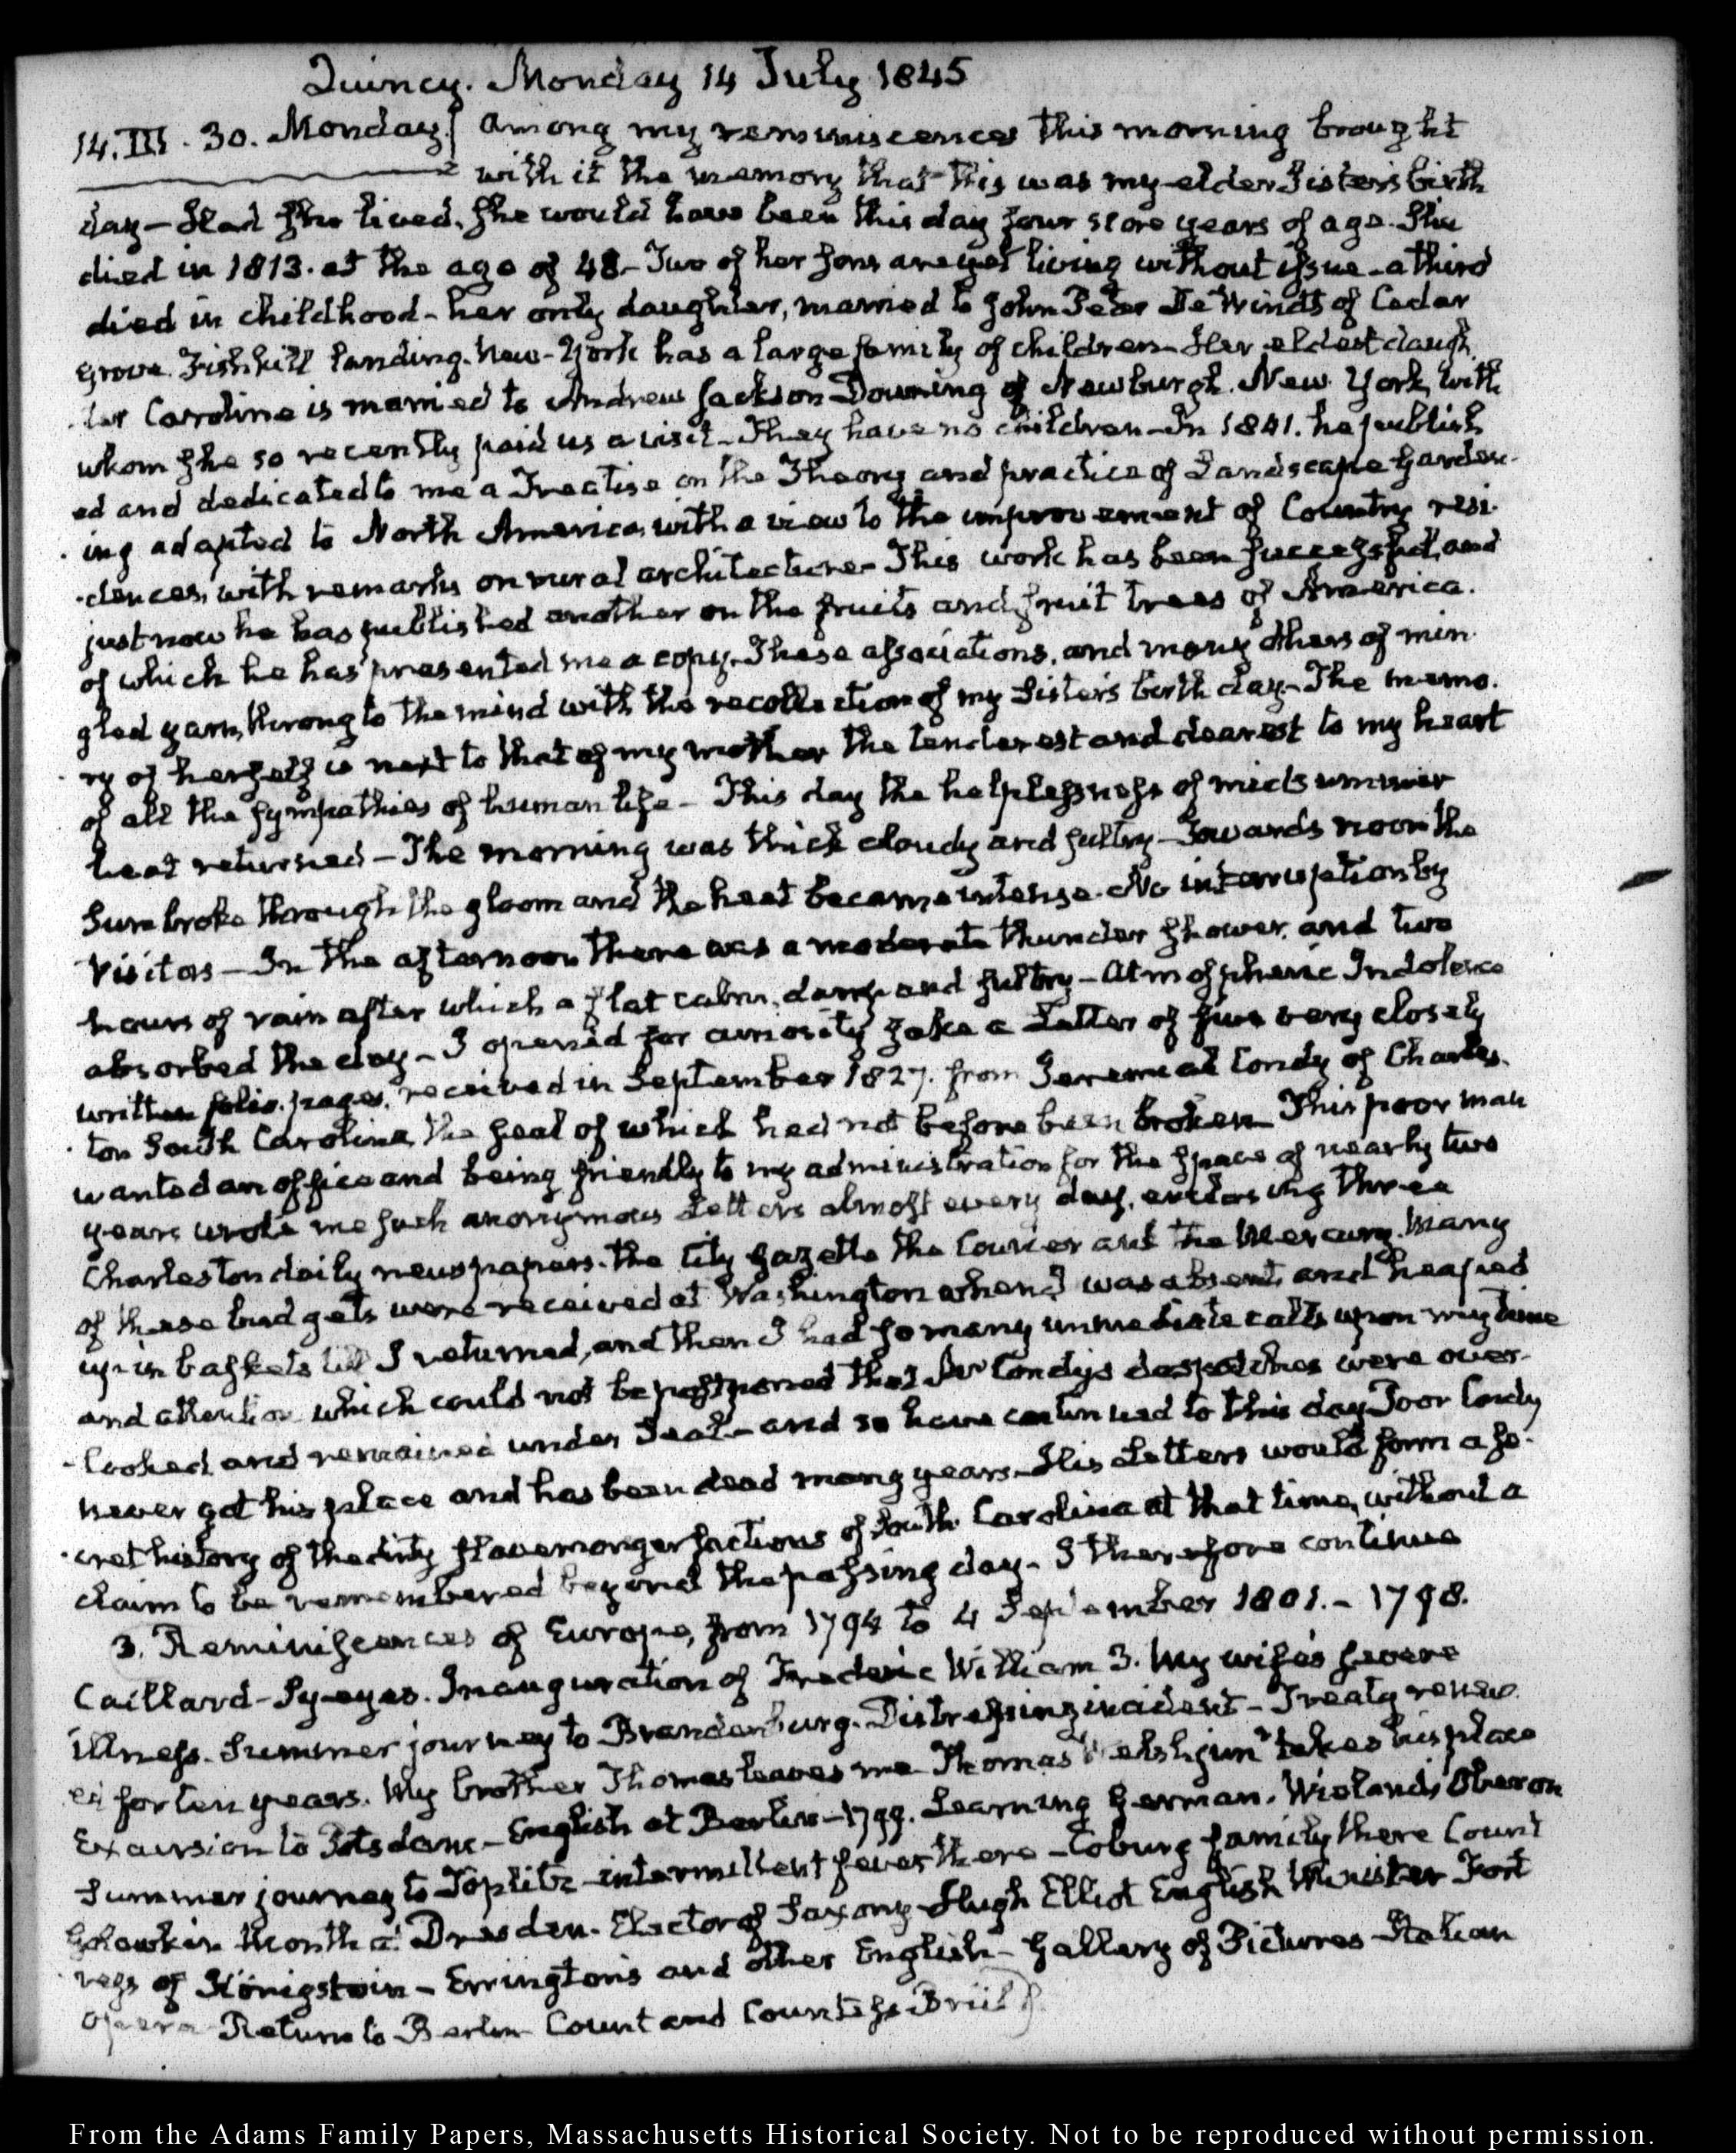 Quincy. Monday 14 July 1845
14. III. 30. Monday. Among my reminiscences this morning brought
with it the memory that this was my elder Sister's birth
day – Had she lived, she would have been this day four score years of age. She
died in 1813. at the age of 48 – Two of her sons are yet living without issue – a third
died in childhood – her only daughter, married to John Peter De Windt of Cedar
grove. Fishkill Landing. New-York has a large family of children – Her eldest daugh
ter Caroline is married to Andrew Jackson Downing of Newburgh. New York, with
whom she so recently paid us a visit – They have no children – In 1841. he publish
ed and dedicated to me a Treatise on the Theory and practice of Landscape Garden-
ing adapted to North America, with a view to the improvement of Country resi-
dences, with remarks on rural architecture – This work has been successful, and
just now he has published another on the fruits and fruit trees of America.
of which he has presented me a copy. These associations, and many others of min-
gled yarn, throng to the mind with the recollection of my Sister's birth day – The memo-
ry of herself is next to that of my mother the tenderest and dearest to my heart
of all the sympathies of human life – This day the helplessness of midsummer
heat returned – The morning was thick cloudy and sultry – Towards noon the
Sun broke through the gloom and the heat became intense. No interruption by
Visitors – In the afternoon there was a moderate thunder shower, and two
hours of rain after which a flat calm, damp and sultry – Atmospheric Indolence
absorbed the day – I opened for curiosity sake a Letter of five very closely
written folio pages, received in September 1827. from Jeremiah Condy of Charles-
ton South Carolina, the seal of which had not before been broken – This poor man
wanted an office and being friendly to my administration for the space of nearly two
years wrote me such anonymous Letters almost every day, enclosing three
Charleston daily newspapers. the City Gazette the Courier and the Mercury. Many
of these budgets were received at Washington when I was absent, and heaped
up in baskets till I returned, and then I had so many immediate calls upon my time
and attention which could not be postponed that Mr Condy's despatches were over-
looked and remained under Seal – and so have continued to this day Poor Condy
never got his place and has been dead many years – His Letters would form a se-
cret history of the dirty slavemonger factions of South Carolina at that time, without a
claim to be remembered beyond the passing day – I therefore continue
3. Reminiscences of Europe, from 1794 to 4 September 1801. – 1798.
Caillard – Syeyes. Inauguration of Frederic William 3. My wife's severe
illness. Summer journey to Brandenburg. Distressing incident – Treaty renew-
ed for ten years. My brother Thomas leaves me Thomas Welsh junr takes his place
Excursion to Potsdam – English at Berlin – 1799. Learning German. Wieland's Oberon
Summer journey to Töplitz – intermittent fever there – Coburg family there Count
Golowkin Month at Dresden. Elector of Saxony – Hugh Elliot English Minister Fort
ress of Königstein – Errington's and other English – Gallery of Pictures – Italian
Opera – Return to Berlin – Count and Countess Brühl
From the Adams Family Papers, Massachusetts Historical Society. Not to be reproduced without permission.